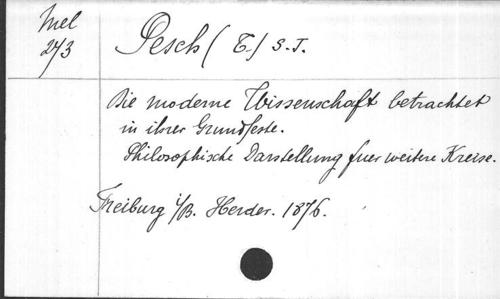 Mel
273
Pesch (T.) S.J.
Die moderne Wissenschaft betrachtet
in ihrer Grundfeste.
Philosophische Darstellung fuer weitere Kreise.
Freiburg i/B. Herder. 1876.